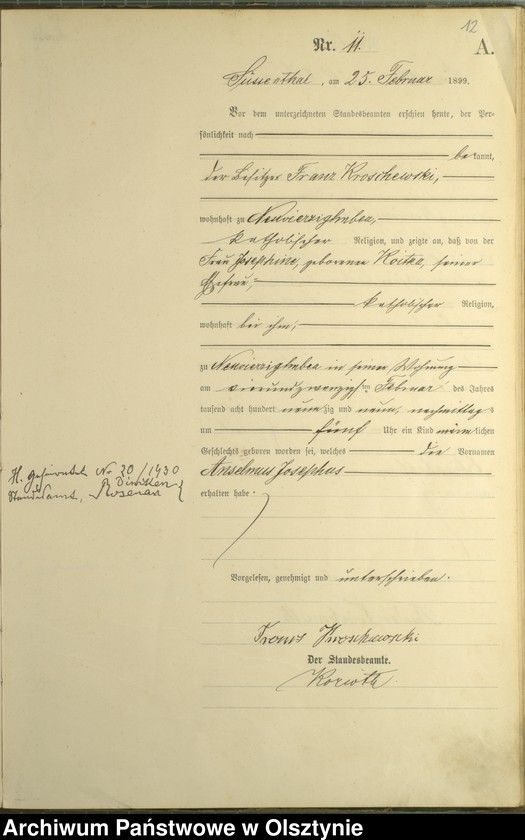 12
Nr. 11.
A.
Süssenthal, am 25. Februar 1899.
Vor dem unterzeichneten Standesbeamten erschien heute, der Per-
sönlichkeit nach
bekannt,
der Besitzer Franz Kroschewski,
wohnhaft zu Neuvierzighuben,
katholischer Religion, und zeigte an, daß von der
Frau Josephine, geborenen Koitka, seiner
Ehefrau,
katholischer Religion,
wohnhaft bei ihm,
zu Neuvierzighuben in seiner Wohnung
am vierundzwanzigsten Februar des Jahres
tausend acht hundert neunzig und neun, nachmittags
um fünf Uhr ein Kind männlichen
Geschlechts geboren worden sei, welches die Vornamen
Anselmus Josephus
erhalten habe.
H. geheiratet No 20/1930
Standesamt, Rosenau
Vorgelesen, genehmigt und unterschrieben.
Franz Kroschewski
Der Standesbeamte.
Korioth
Archiwum Państwowe w Olsztynie